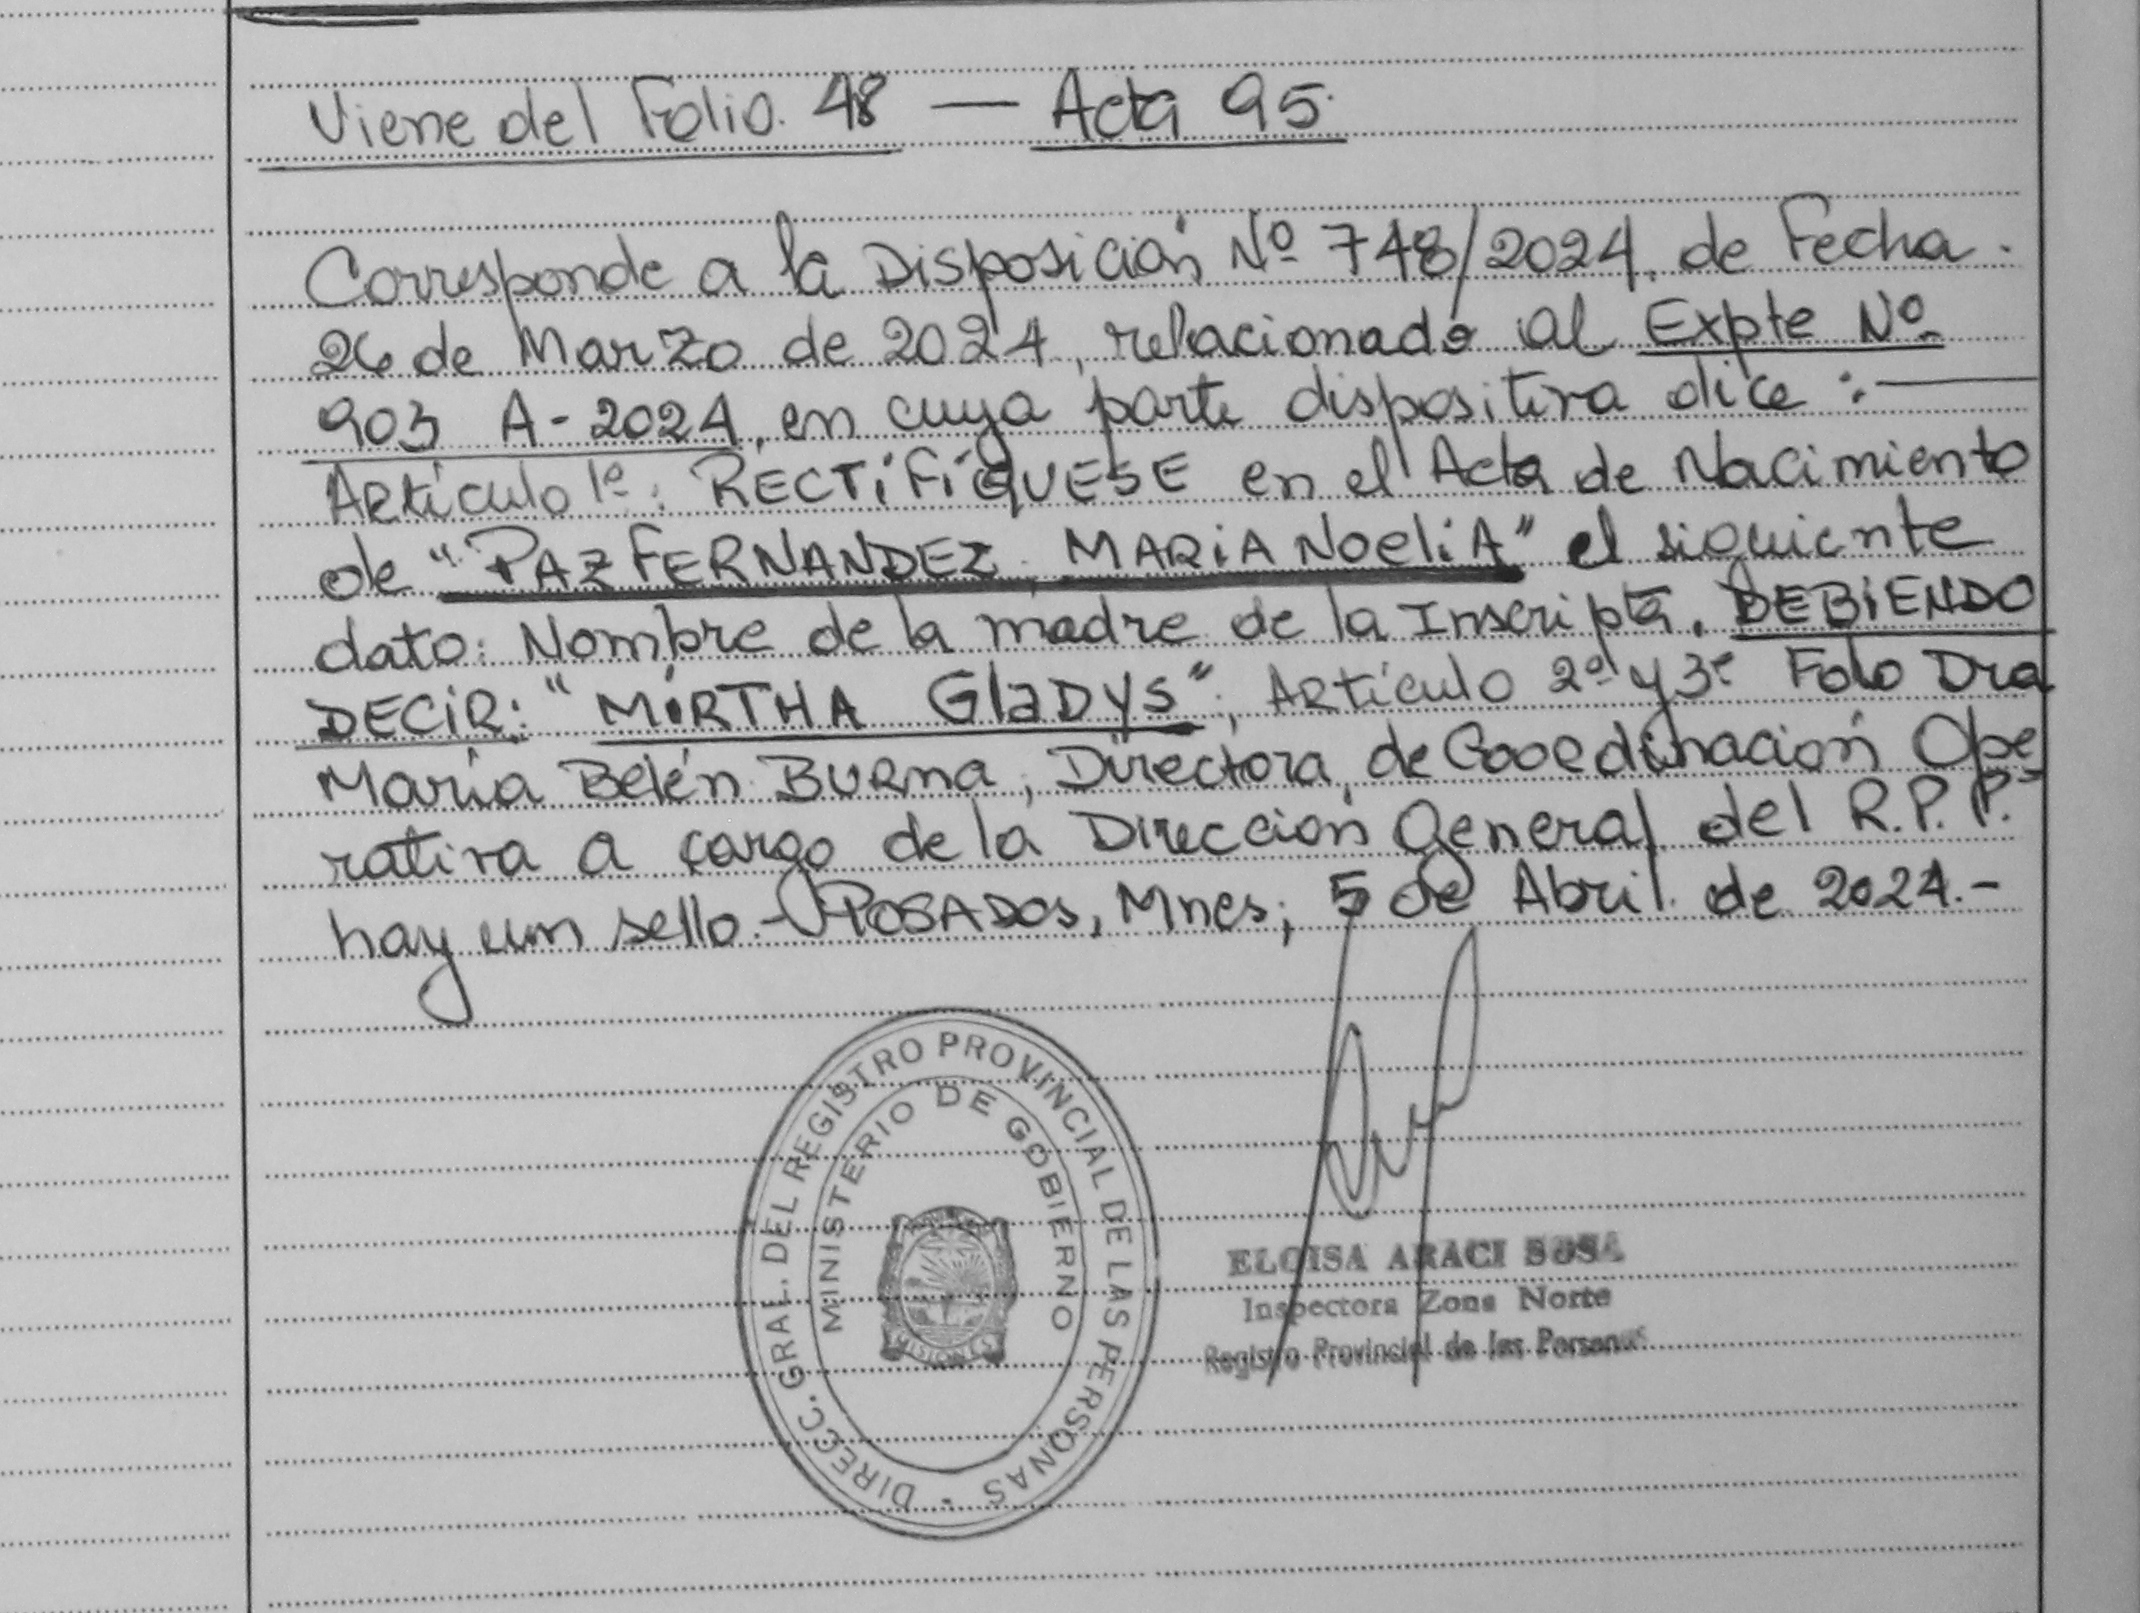 Viene del Folio. 48 — Acta 95.
Corresponde a la Disposición Nº 748/2024, de Fecha.
26 de Marzo de 2024, relacionado al Expte Nº
903 A-2024, en cuya parte dispositiva dice:—
Artículo 1º: RECTIFÍQUESE en el Acta de Nacimiento
de "PAZ FERNANDEZ, MARIA NOELIA" el siguiente
dato: Nombre de la madre de la Inscripta. DEBIENDO
DECIR: "MIRTHA GLADYS", Artículo 2º y 3º Fdo Dra
María Belén Burna, Directora de Coordinación Ope-
rativa a cargo de la Dirección General del R.P.P.
hay un sello.- POSADAS, Mnes; 5 de Abril de 2024.-
DIRECC. GRAL. DEL REGISTRO PROVINCIAL DE LAS PERSONAS -
MINISTERIO DE GOBIERNO
MISIONES
ELOISA ARACI SOSA
Inspectora Zona Norte
Registro Provincial de las Personas